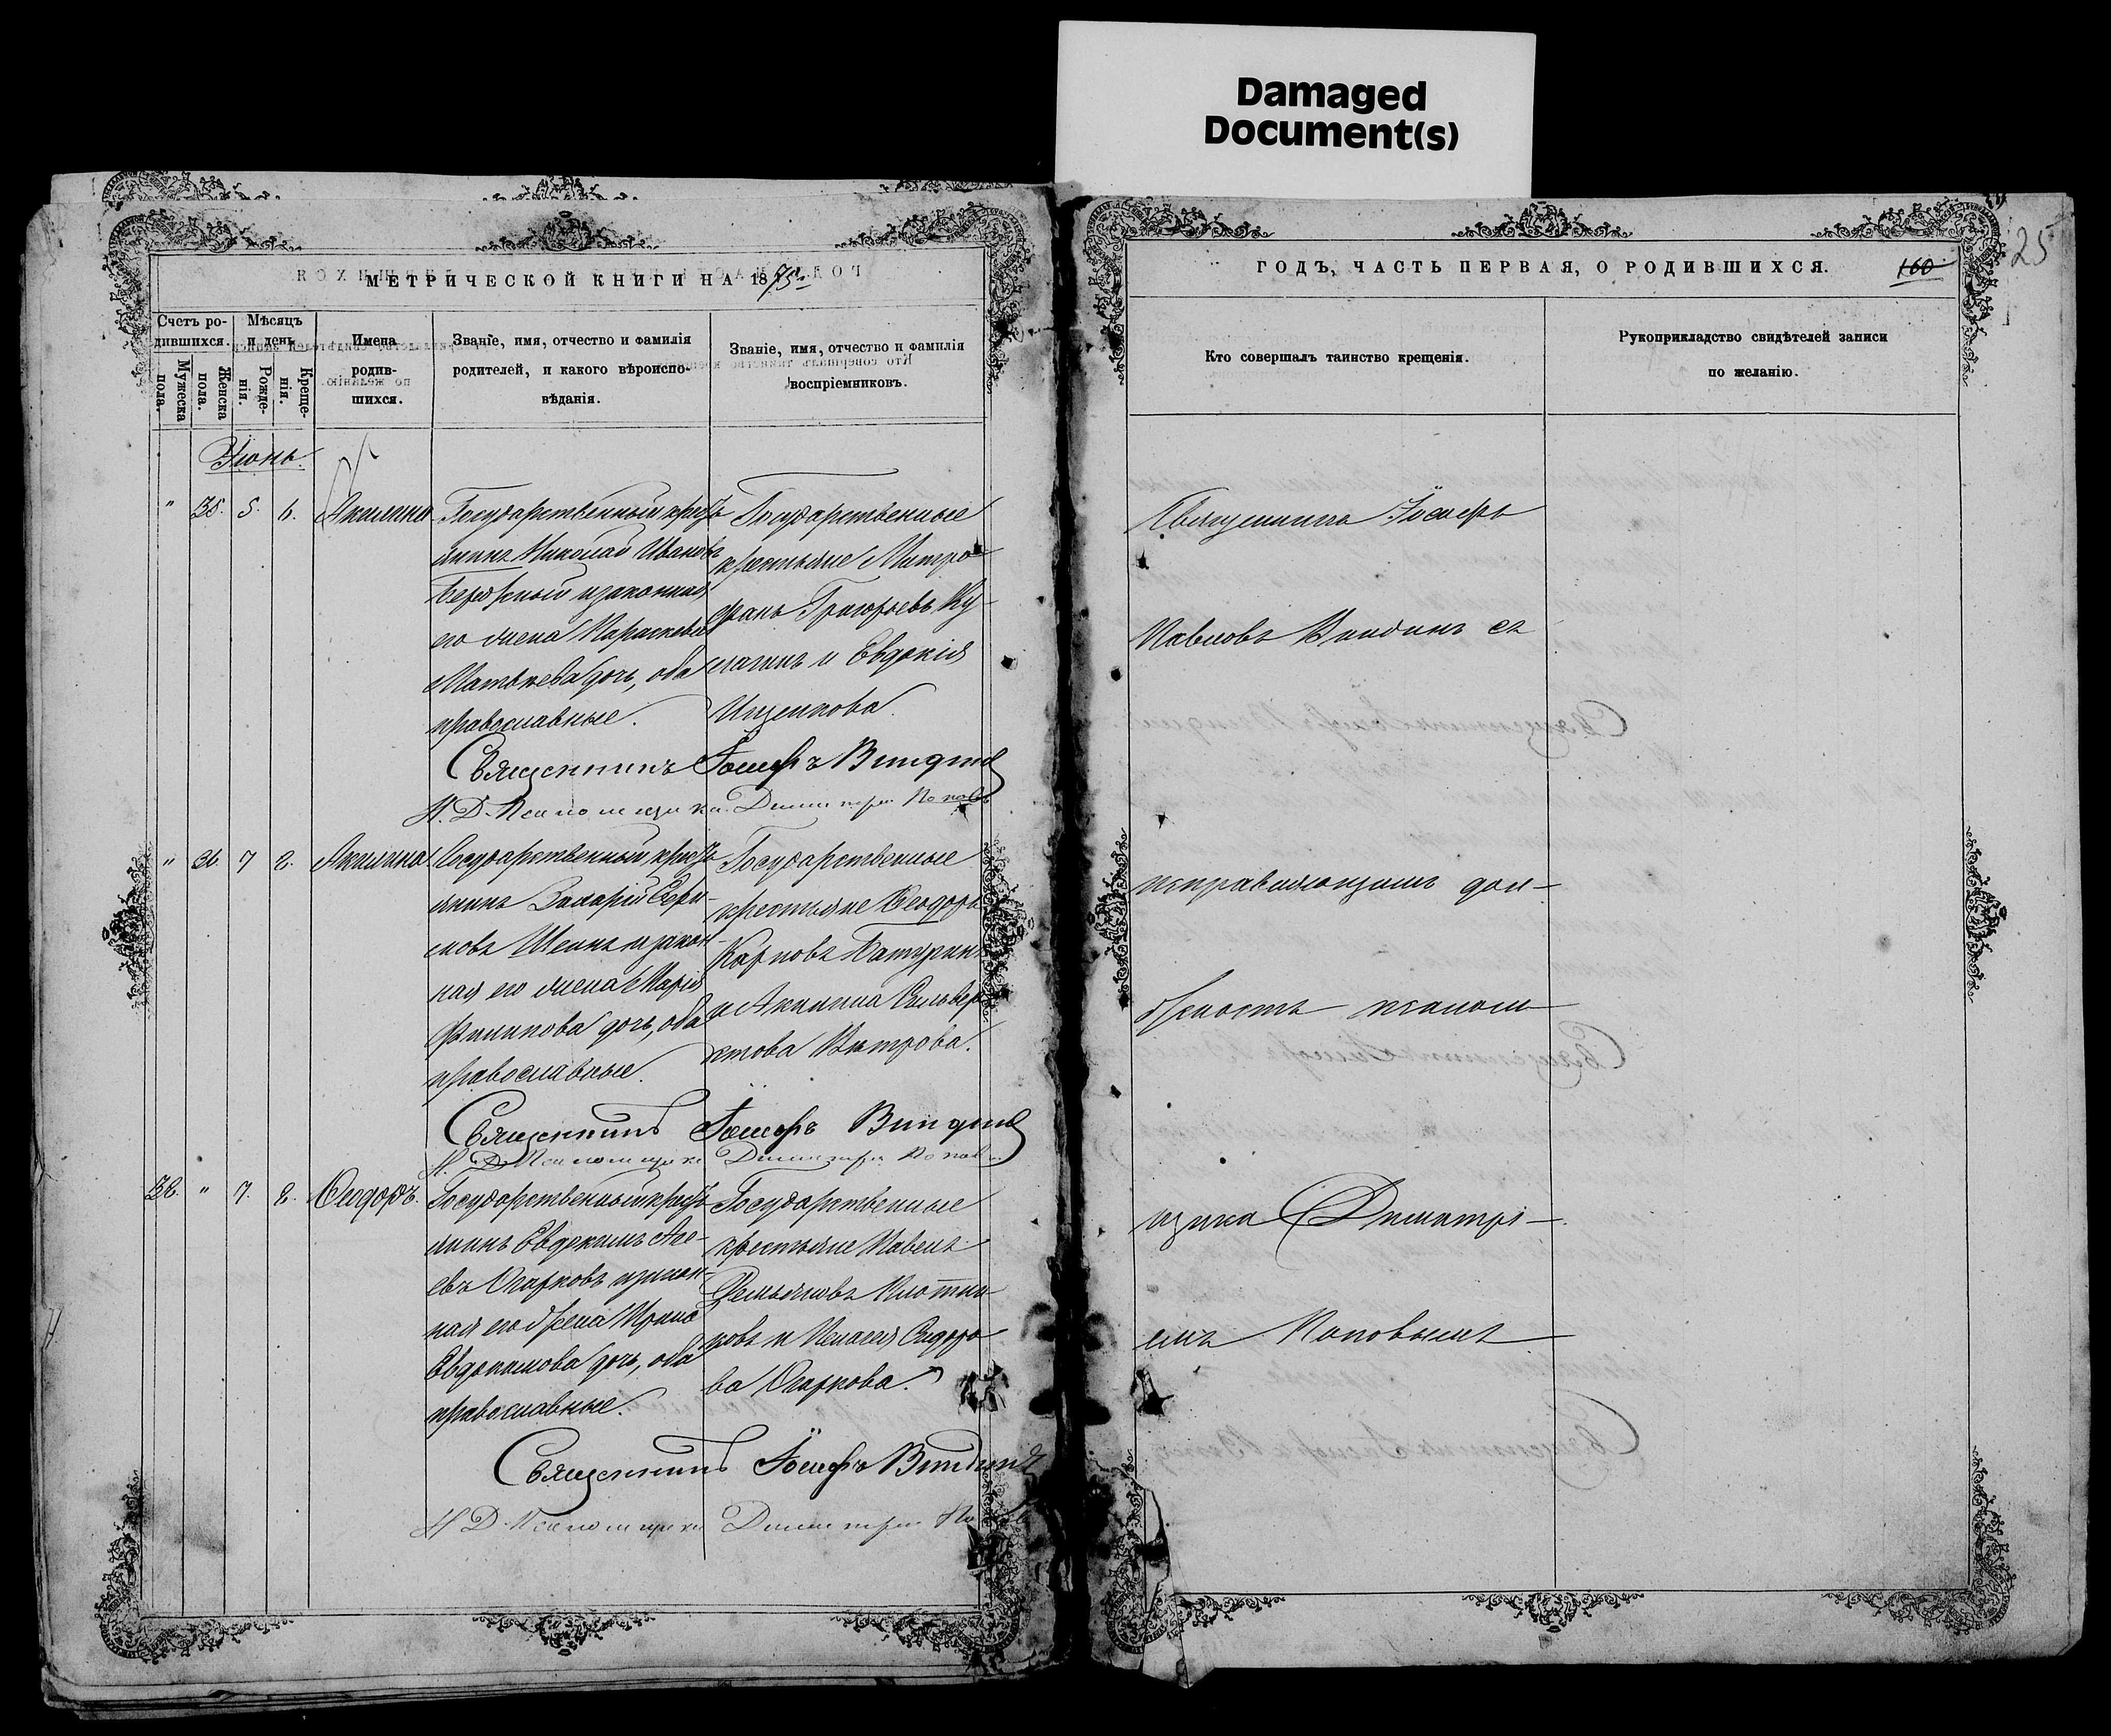 Damaged
Document(s)
МЕТРИЧЕСКОЙ КНИГИ НА 1875
Счетъ ро-
дившихся.
Мѣсяцъ
и день
Мужеска
пола.
Женска
пола.
Рожде-
нія.
Креще-
нія.
Имена
родив-
шихся.
Званіе, имя, отчество и фамилія
родителей, и какого вѣроиспо-
вѣданія.
Званіе, имя, отчество и фамилія
воспріемниковъ.
Іюнь.
" 35. 5. 6. Акилина
Государственный кресть
янинъ Николай Ивановъ
и законная
его жена Параскева
Матвѣева дочь, оба
православные.
Государственные
крестьяне Митро-
фанъ Григорьевъ Ку-
лагинъ и Евдокія
Ищенкова.
Священникъ Іосифъ Виндинъ
И. Д. Псаломщика Димитрій Поповъ
" 36. 7 8. Акилина
Государственный кресть
янинъ Захарій Гера-
симовъ и закон-
ная его жена Марія
Филипова дочь, оба
православные.
Государственные
крестьяне Ѳеодоръ
Карповъ Батуринъ
и Акилина Сильвер-
стова Вѣтрова.
Священникъ Іосифъ Виндинъ
И. Д. Псаломщика Димитрій Поповъ
38. " 7. 8. Ѳеодоръ.
Государственный кресть
янинъ Евдокимъ Але-
евъ Огарковъ и закон-
ная его жена Ирина
Евдокимова дочь, оба
православные.
Государственные
крестьяне Павелъ
Демьяновъ Плотни-
ковъ и Пелагея Сидоро-
ва Огаркова.
Священникъ Іосифъ Виндинъ
И. Д. Псаломщика Димитрій Поповъ
ГОДЪ, ЧАСТЬ ПЕРВАЯ, О РОДИВШИХСЯ.
160
25
Кто совершалъ таинство крещенія.
Рукоприкладство свидѣтелей записи
по желанію.
Священникъ Іосифъ
Павловъ Виндинъ съ
исправляющимъ дол-
жность псалом-
щика Димитрі-
емъ Поповымъ